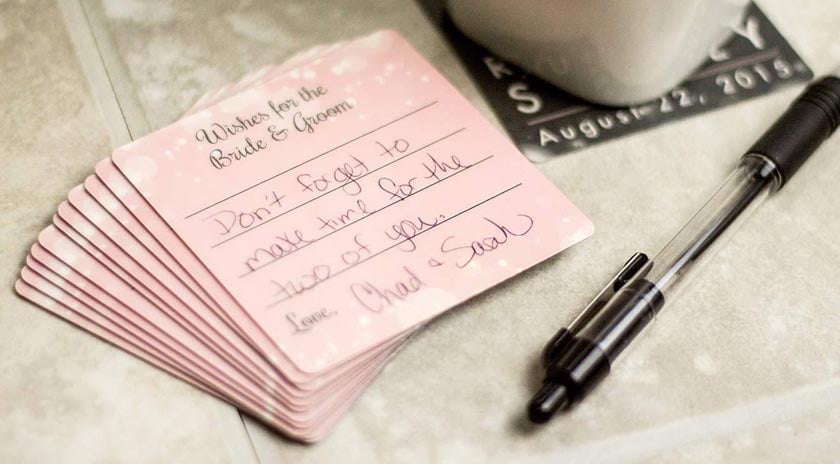 Wishes for the
Bride & Groom
Don't forget to
make time for the
two of you.
Love, Chad & Sarah
S
August 22, 2015